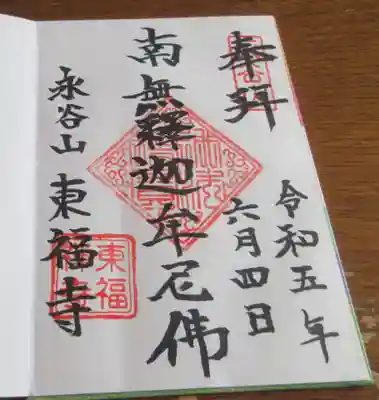 奉拜
令和五年
六月四日
南無釋迦牟尼佛
永谷山 東福寺
東福